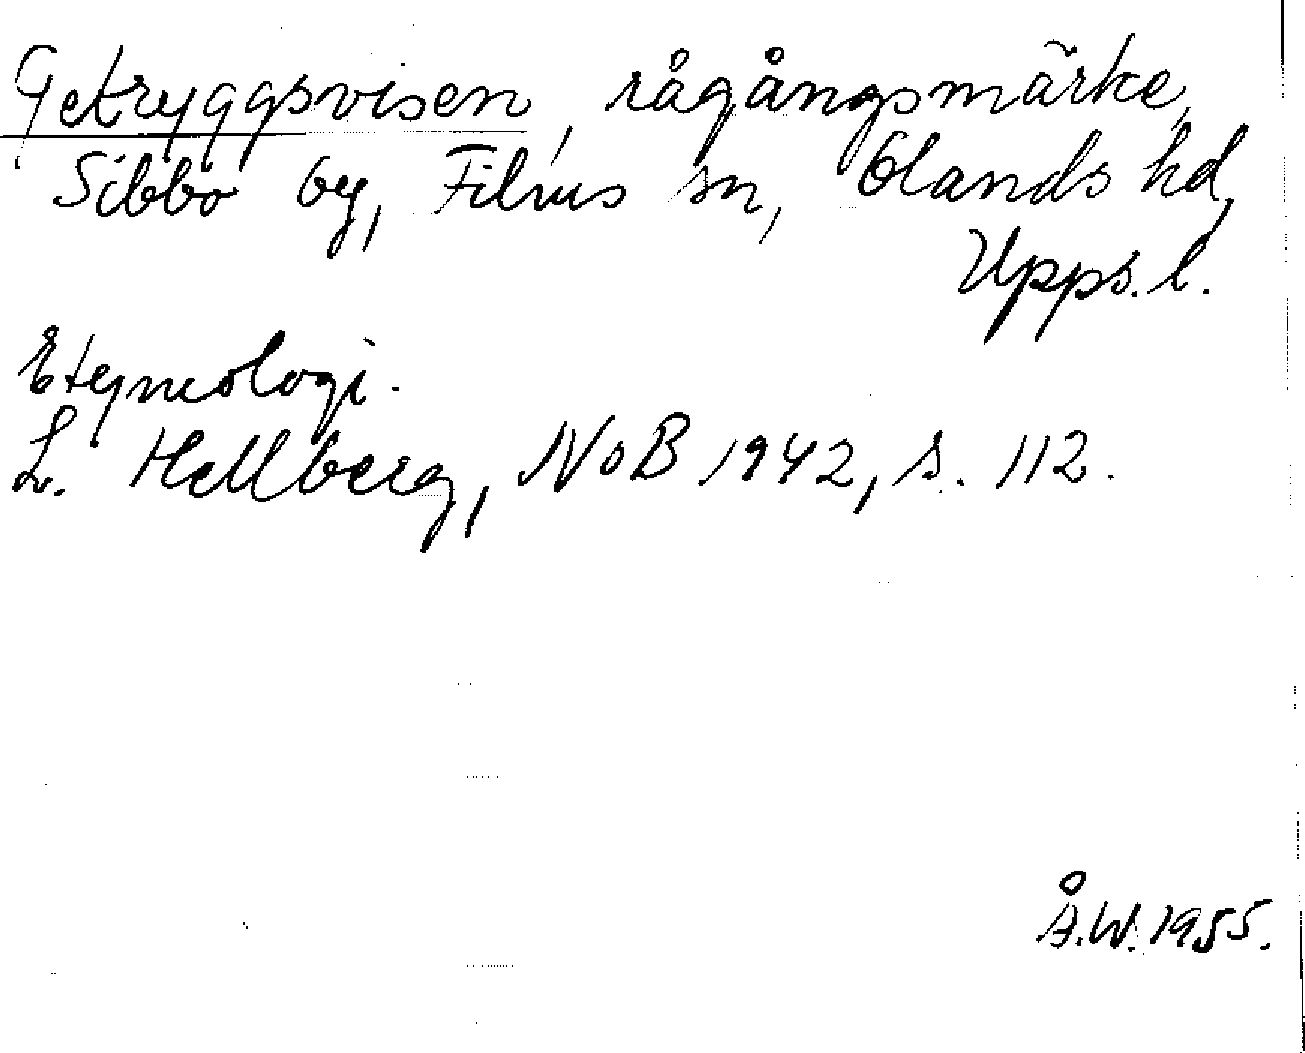 Getryggsvisen, rågångsmärke,
Sibbo by, Films sn, Olands hd,
Upps. l.
Etymologi.
L. Hellberg, NoB 1942, s. 112.
Å.W. 1955.